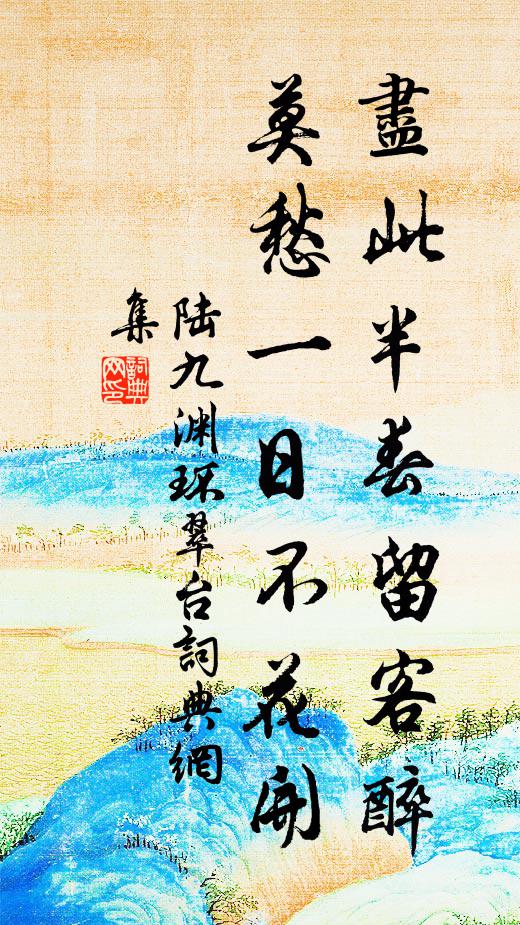 盡此半春留客醉
莫愁一日不花開
陸九渊環翠台詞典網
集
詞典
网印